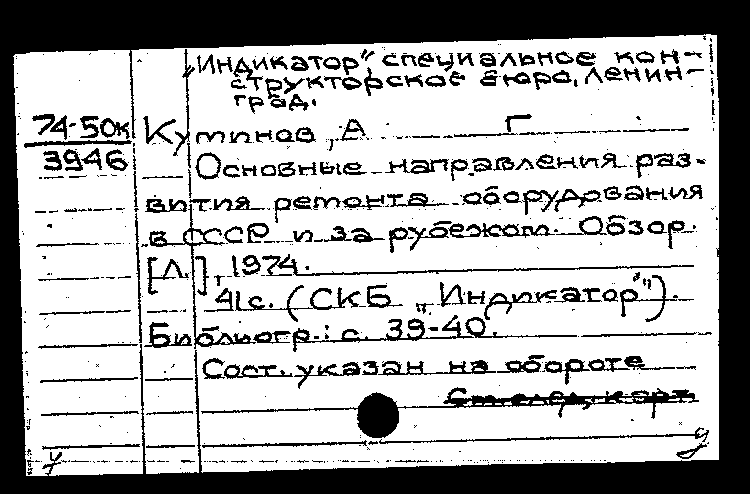 „Индикатор", специальное кон-
структорское бюро, Ленин-
град.
74-50к Кутинов, А Г
3946 Основные направления раз-
вития ремонта оборудования
в СССР и за рубежом. Обзор.
[Л.], 1974.
41 с. (СКБ „Индикатор").
Библиогр.: с. 39-40.
Сост. указан на обороте
См. след. карт.
у д